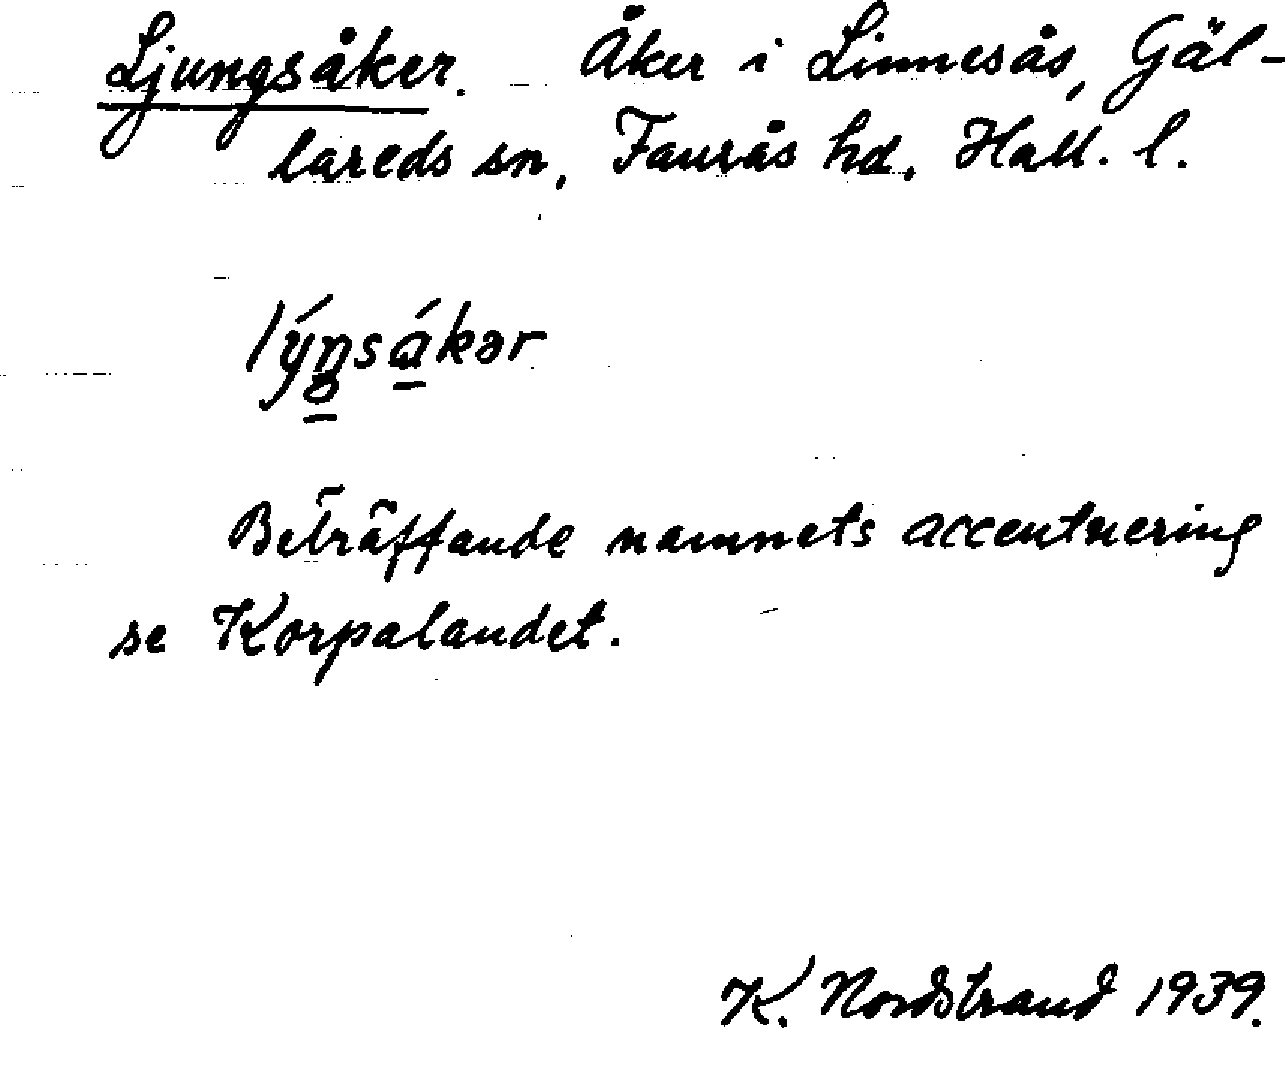 Ljungsåker. Åker i Linnesås, Gäl-
lareds sn, Faurås hd, Hall. l.
lýŋsákər
Beträffande namnets accentuering
se Korpalandet.
K. Nordstrand 1939.